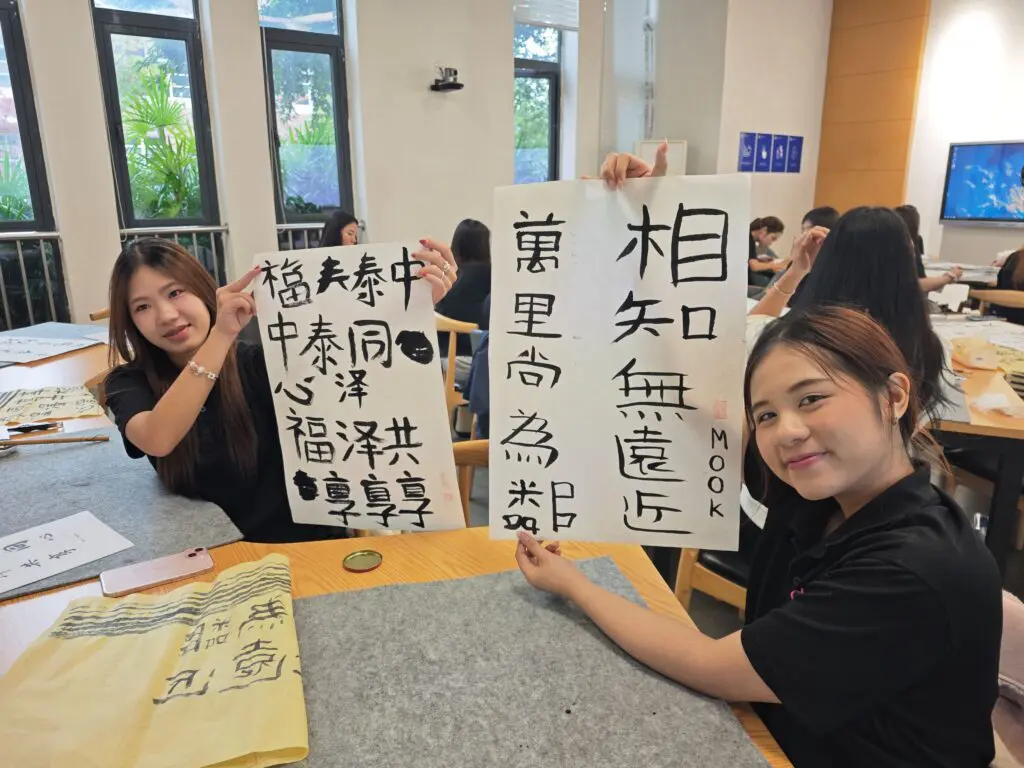 福夫泰中
中泰同
心泽
福泽共
享享享
相知無遠近
萬里尚為鄰
MOOK